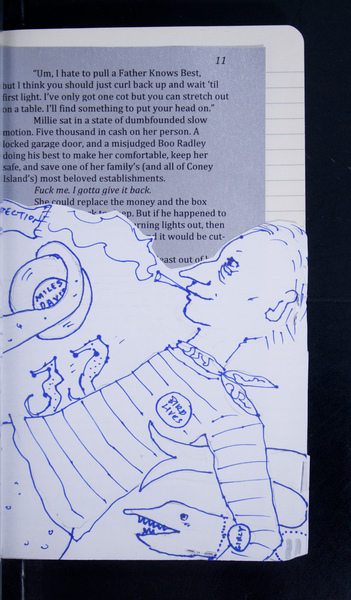 11
"Um, I hate to pull a Father Knows Best,
but I think you should just curl back up and wait 'til
first light. I've only got one cot but you can stretch out
on a table. I'll find something to put your head on."
Millie sat in a state of dumbfounded slow
motion. Five thousand in cash on her person. A
locked garage door, and a misjudged Boo Radley
doing his best to make her comfortable, keep her
safe, and save one of her family's (and all of Coney
Island's) most beloved establishments.
Fuck me. I gotta give it back.
She could replace the money and the box
But if he happened to
lights out, then
it would be cut-
east out of
MILES
DAVIS
37
BIRD
LIVES
GIRLY